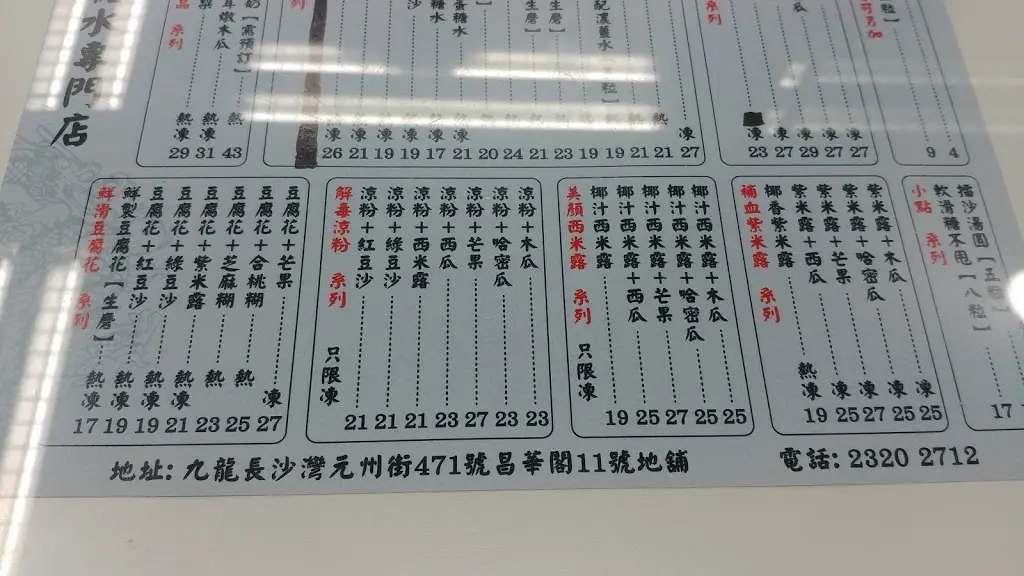 水專門店
系列
梨 熱凍 29
耳燉木瓜 熱凍 31
奶【需預訂】 熱 43
列
沙
糖水
蛋糖水
【生磨】
生磨】
配濃薑水
粒】
26 21 19 19 17 21 20 24 21 23 19 19 21 21 27
系列
凍 凍 凍 凍 凍
23 27 29 27 27
粒】
9 4
鮮滑豆腐花 系列
鮮製豆腐花【生磨】 熱凍 17
豆腐花+紅豆沙 熱凍 19
豆腐花+綠豆沙 熱凍 19
豆腐花+紫米露 熱凍 21
豆腐花+芝麻糊 熱 23
豆腐花+合桃糊 熱 25
豆腐花+芒果 凍 27
解毒涼粉 系列 只限凍
涼粉+紅豆沙 21
涼粉+綠豆沙 21
涼粉+西米露 21
涼粉+西瓜 23
涼粉+芒果 27
涼粉+哈密瓜 23
涼粉+木瓜 23
美顏西米露 系列 只限凍
椰汁西米露 19
椰汁西米露+西瓜 25
椰汁西米露+芒果 27
椰汁西米露+哈密瓜 25
椰汁西米露+木瓜 25
補血紫米露 系列
椰香紫米露 熱凍 19
紫米露+西瓜 凍 25
紫米露+芒果 凍 27
紫米露+哈密瓜 凍 25
紫米露+木瓜 凍 25
小點 系列
軟滑糖不甩【八粒】 17
擂沙湯圓【五粒】
地址: 九龍長沙灣元州街471號昌華閣11號地舖
電話: 2320 2712